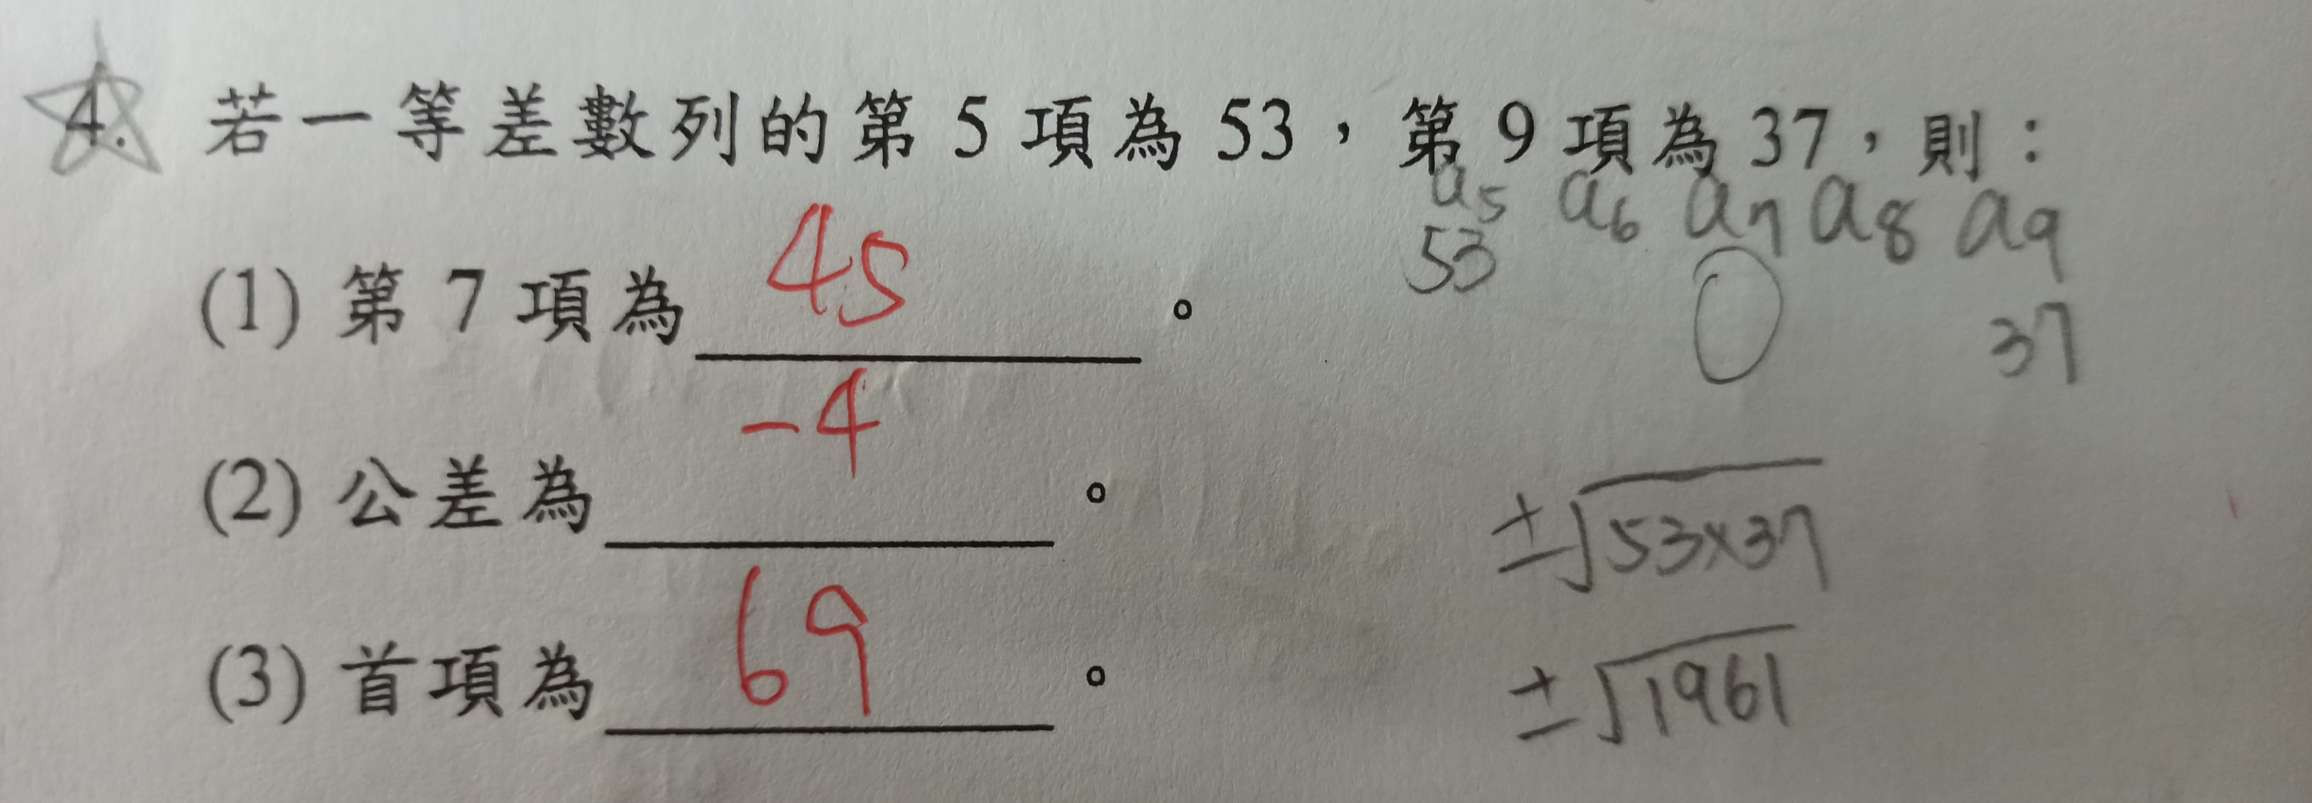 4. 若一等差數列的第 5 項為 53，第 9 項為 37，則：
a5 a6 a7 a8 a9
53 37
(1) 第 7 項為 45 。
(2) 公差為 -4 。
±√53×37
(3) 首項為 69 。
±√1961